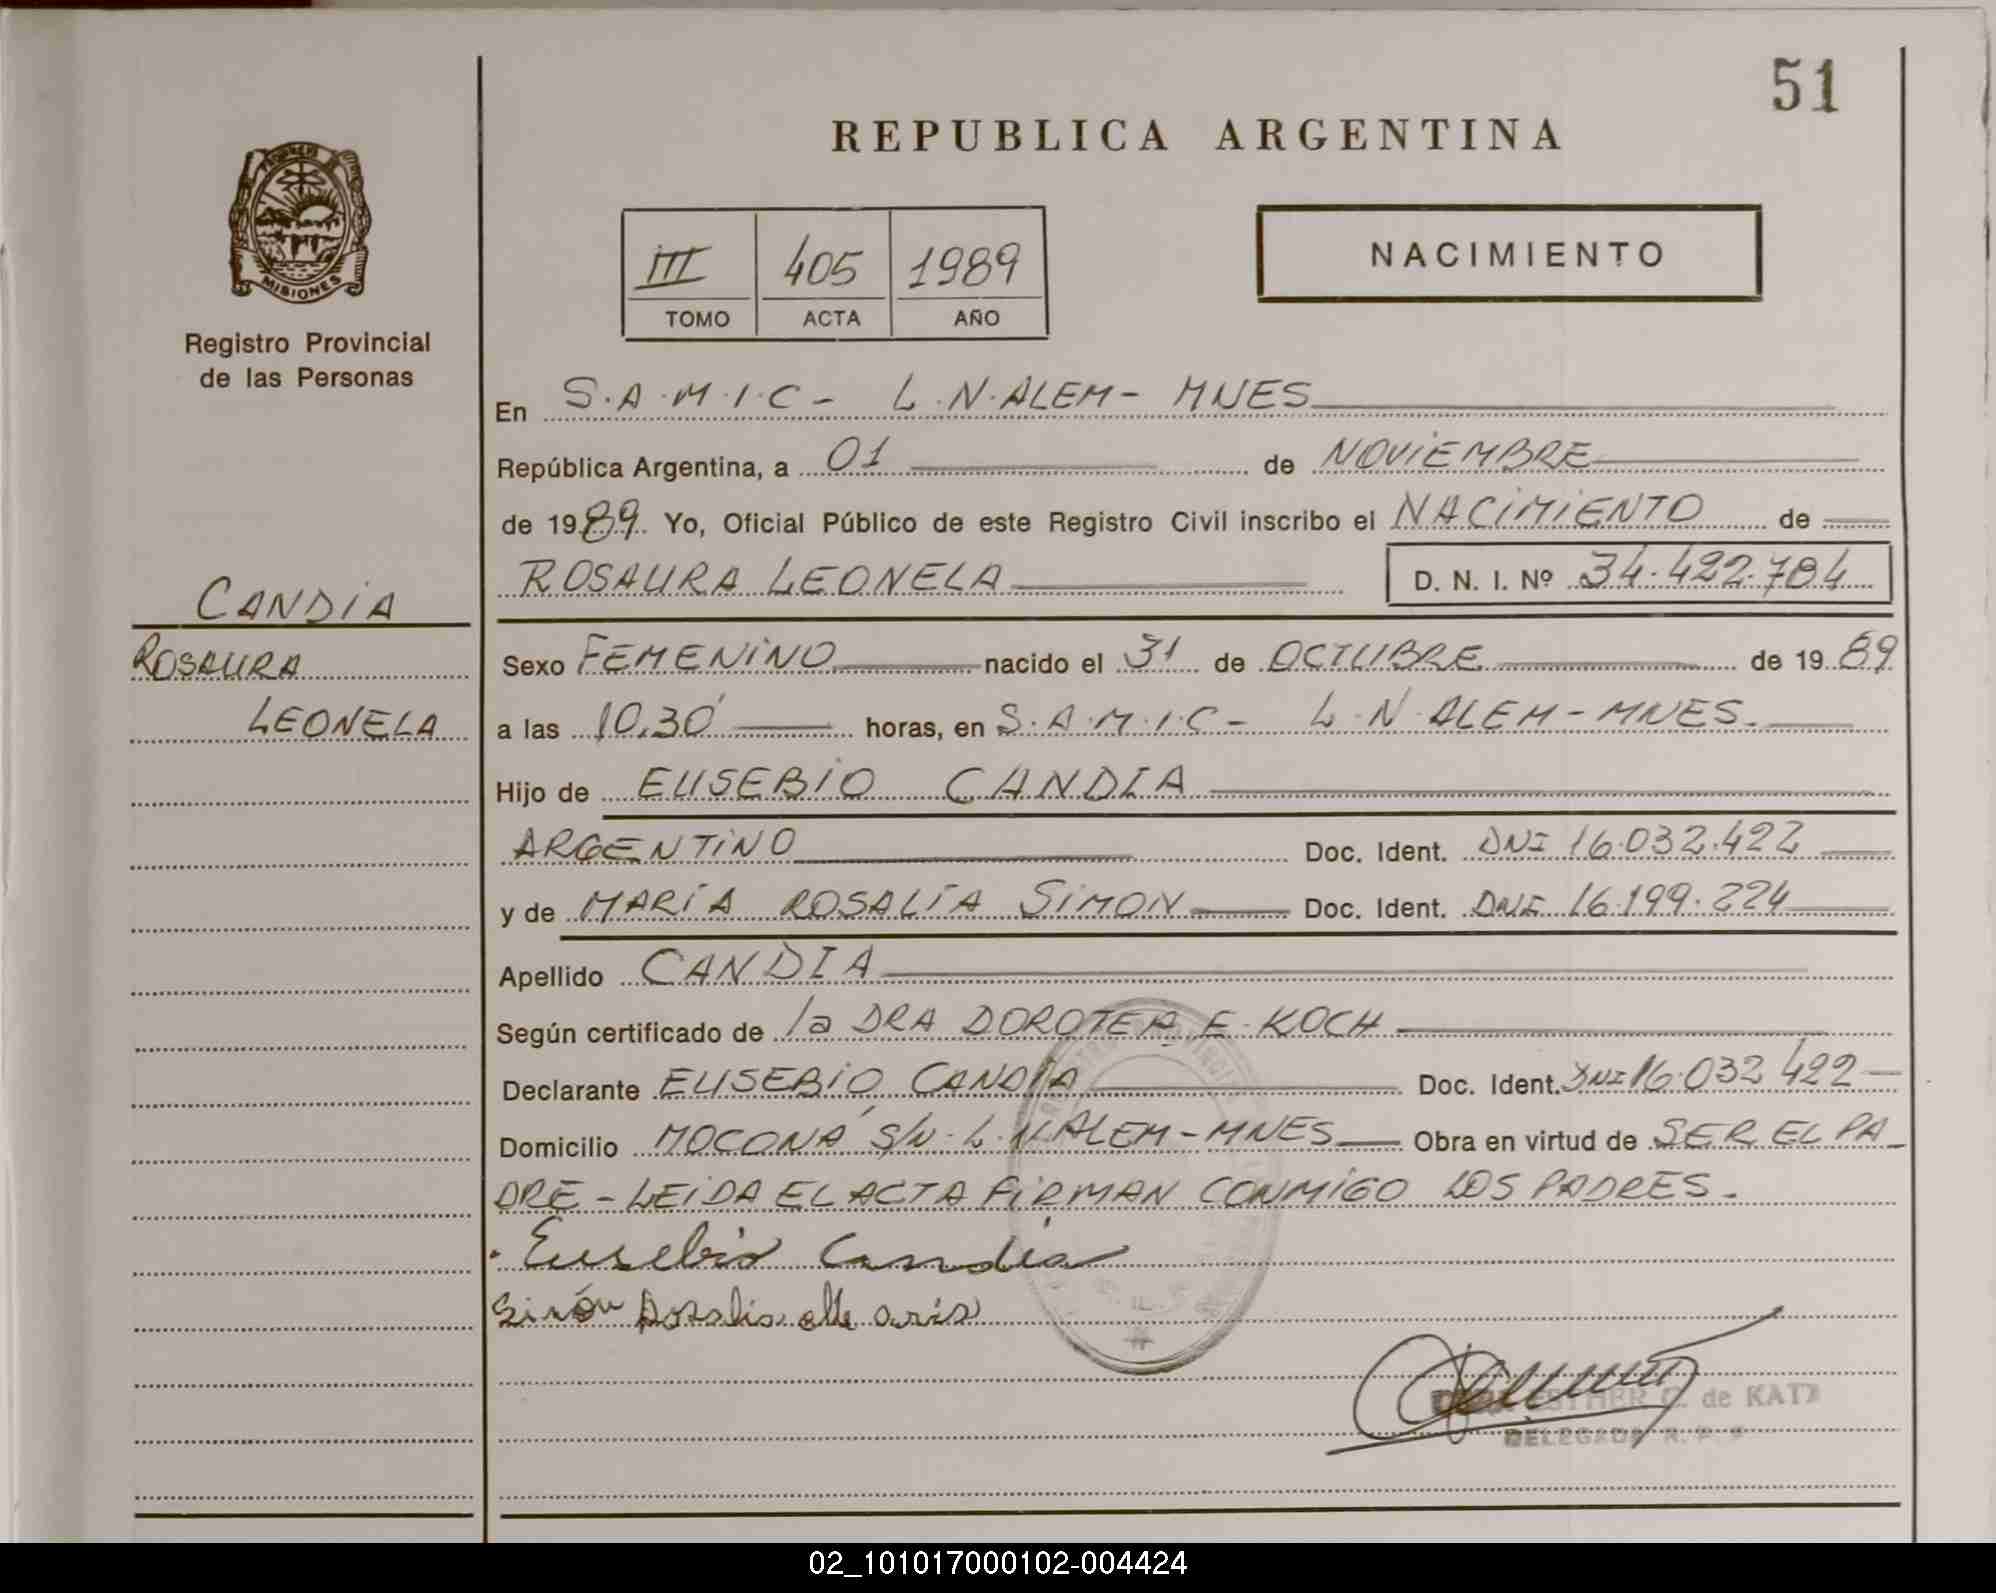 51
REPUBLICA ARGENTINA
MISIONES
Registro Provincial
de las Personas
III 405 1989
TOMO ACTA AÑO
NACIMIENTO
En S.A.M.I.C - L.N.ALEM - MNES
República Argentina, a 01 de NOVIEMBRE
de 1989. Yo, Oficial Público de este Registro Civil inscribo el NACIMIENTO de
ROSAURA LEONELA D. N. I. Nº 34.422.784
CANDIA
ROSAURA
LEONELA
Sexo FEMENINO nacido el 31 de OCTUBRE de 1989
a las 10,30 horas, en S.A.M.I.C - L.N ALEM - MNES.
Hijo de EUSEBIO CANDIA
ARGENTINO Doc. Ident. DNI 16.032.422
y de MARÍA ROSALÍA SIMON Doc. Ident. DNI 16.199.224
Apellido CANDIA
Según certificado de la DRA DOROTEA E. KOCH
Declarante EUSEBIO CANDÍA Doc. Ident. DNI 16.032 422
Domicilio MOCONÁ S/N - L.N.ALEM - MNES Obra en virtud de SER EL PA
DRE - LEIDA EL ACTA FIRMAN CONMIGO LOS PADRES.
Eusebio Candia
Simón Rosalia Maria
ESTHER C. de KATZ
DELEGADA R. P. P
02_101017000102-004424